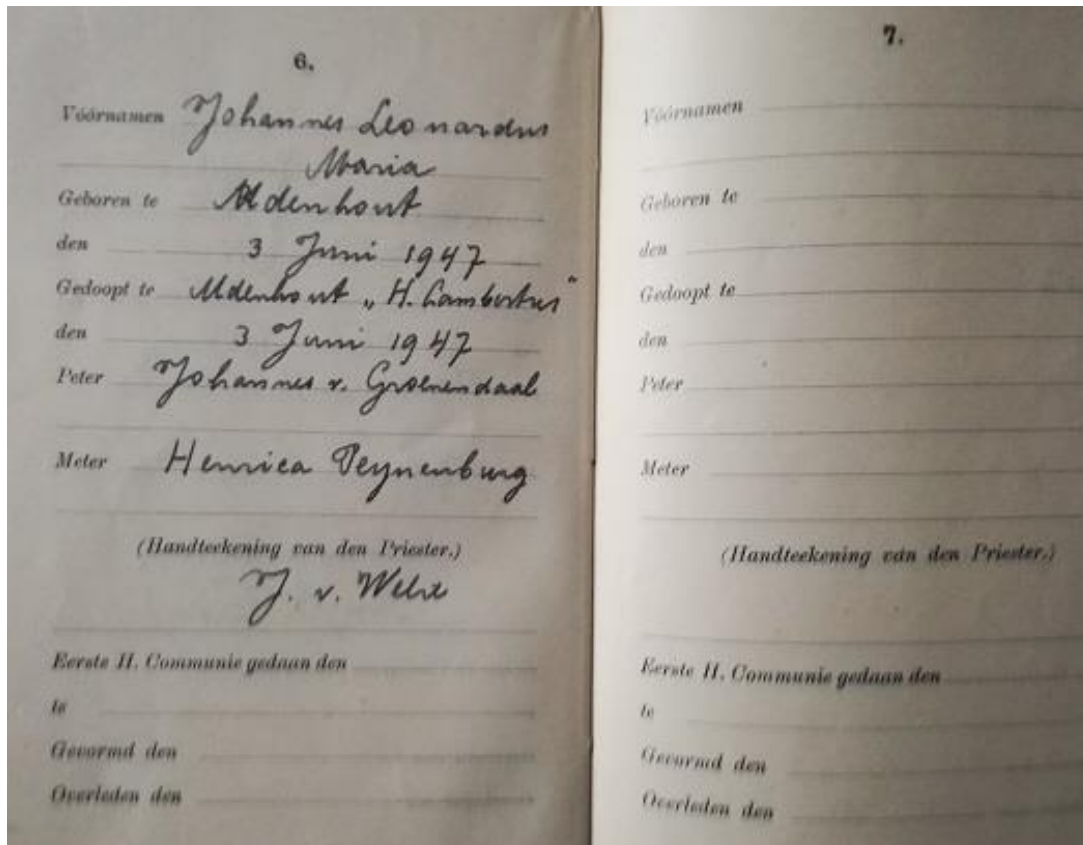 6.
Vóórnamen Johannes Leonardus
Maria
Geboren te Udenhout
den 3 Juni 1947
Gedoopt te Udenhout „H. Lambertus"
den 3 Juni 1947
Peter Johannes v. Groenendaal
Meter Henrica Peynenburg
(Handteekening van den Priester.)
J. v.
Eerste H. Communie gedaan den
te
Gevormd den
Overleden den
7.
Vóórnamen
Geboren te
den
Gedoopt te
den
Peter
Meter
(Handteekening van den Priester.)
Eerste H. Communie gedaan den
te
Gevormd den
Overleden den